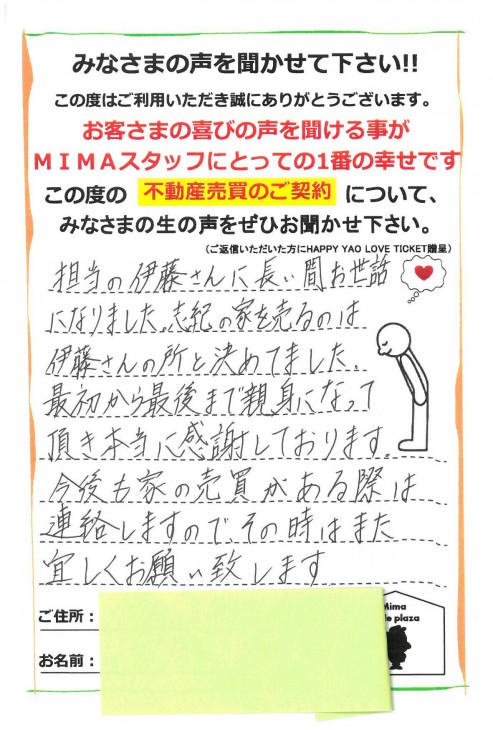 みなさまの声を聞かせて下さい!!
この度はご利用いただき誠にありがとうございます。
お客さまの喜びの声を聞ける事が
MIMAスタッフにとっての1番の幸せです
この度の 不動産売買のご契約 について、
みなさまの生の声をぜひお聞かせ下さい。
(ご返信いただいた方にHAPPY YAO LOVE TICKET贈呈)
担当の伊藤さんに長い間お世話
になりました。志紀の家を売るのは
伊藤さんの所と決めてました。
最初から最後まで親身になって
頂き本当に感謝しております。
今後も家の売買がある際は
連絡しますので、その時はまた
宜しくお願い致します。
ご住所：
お名前：
Mima
plaza